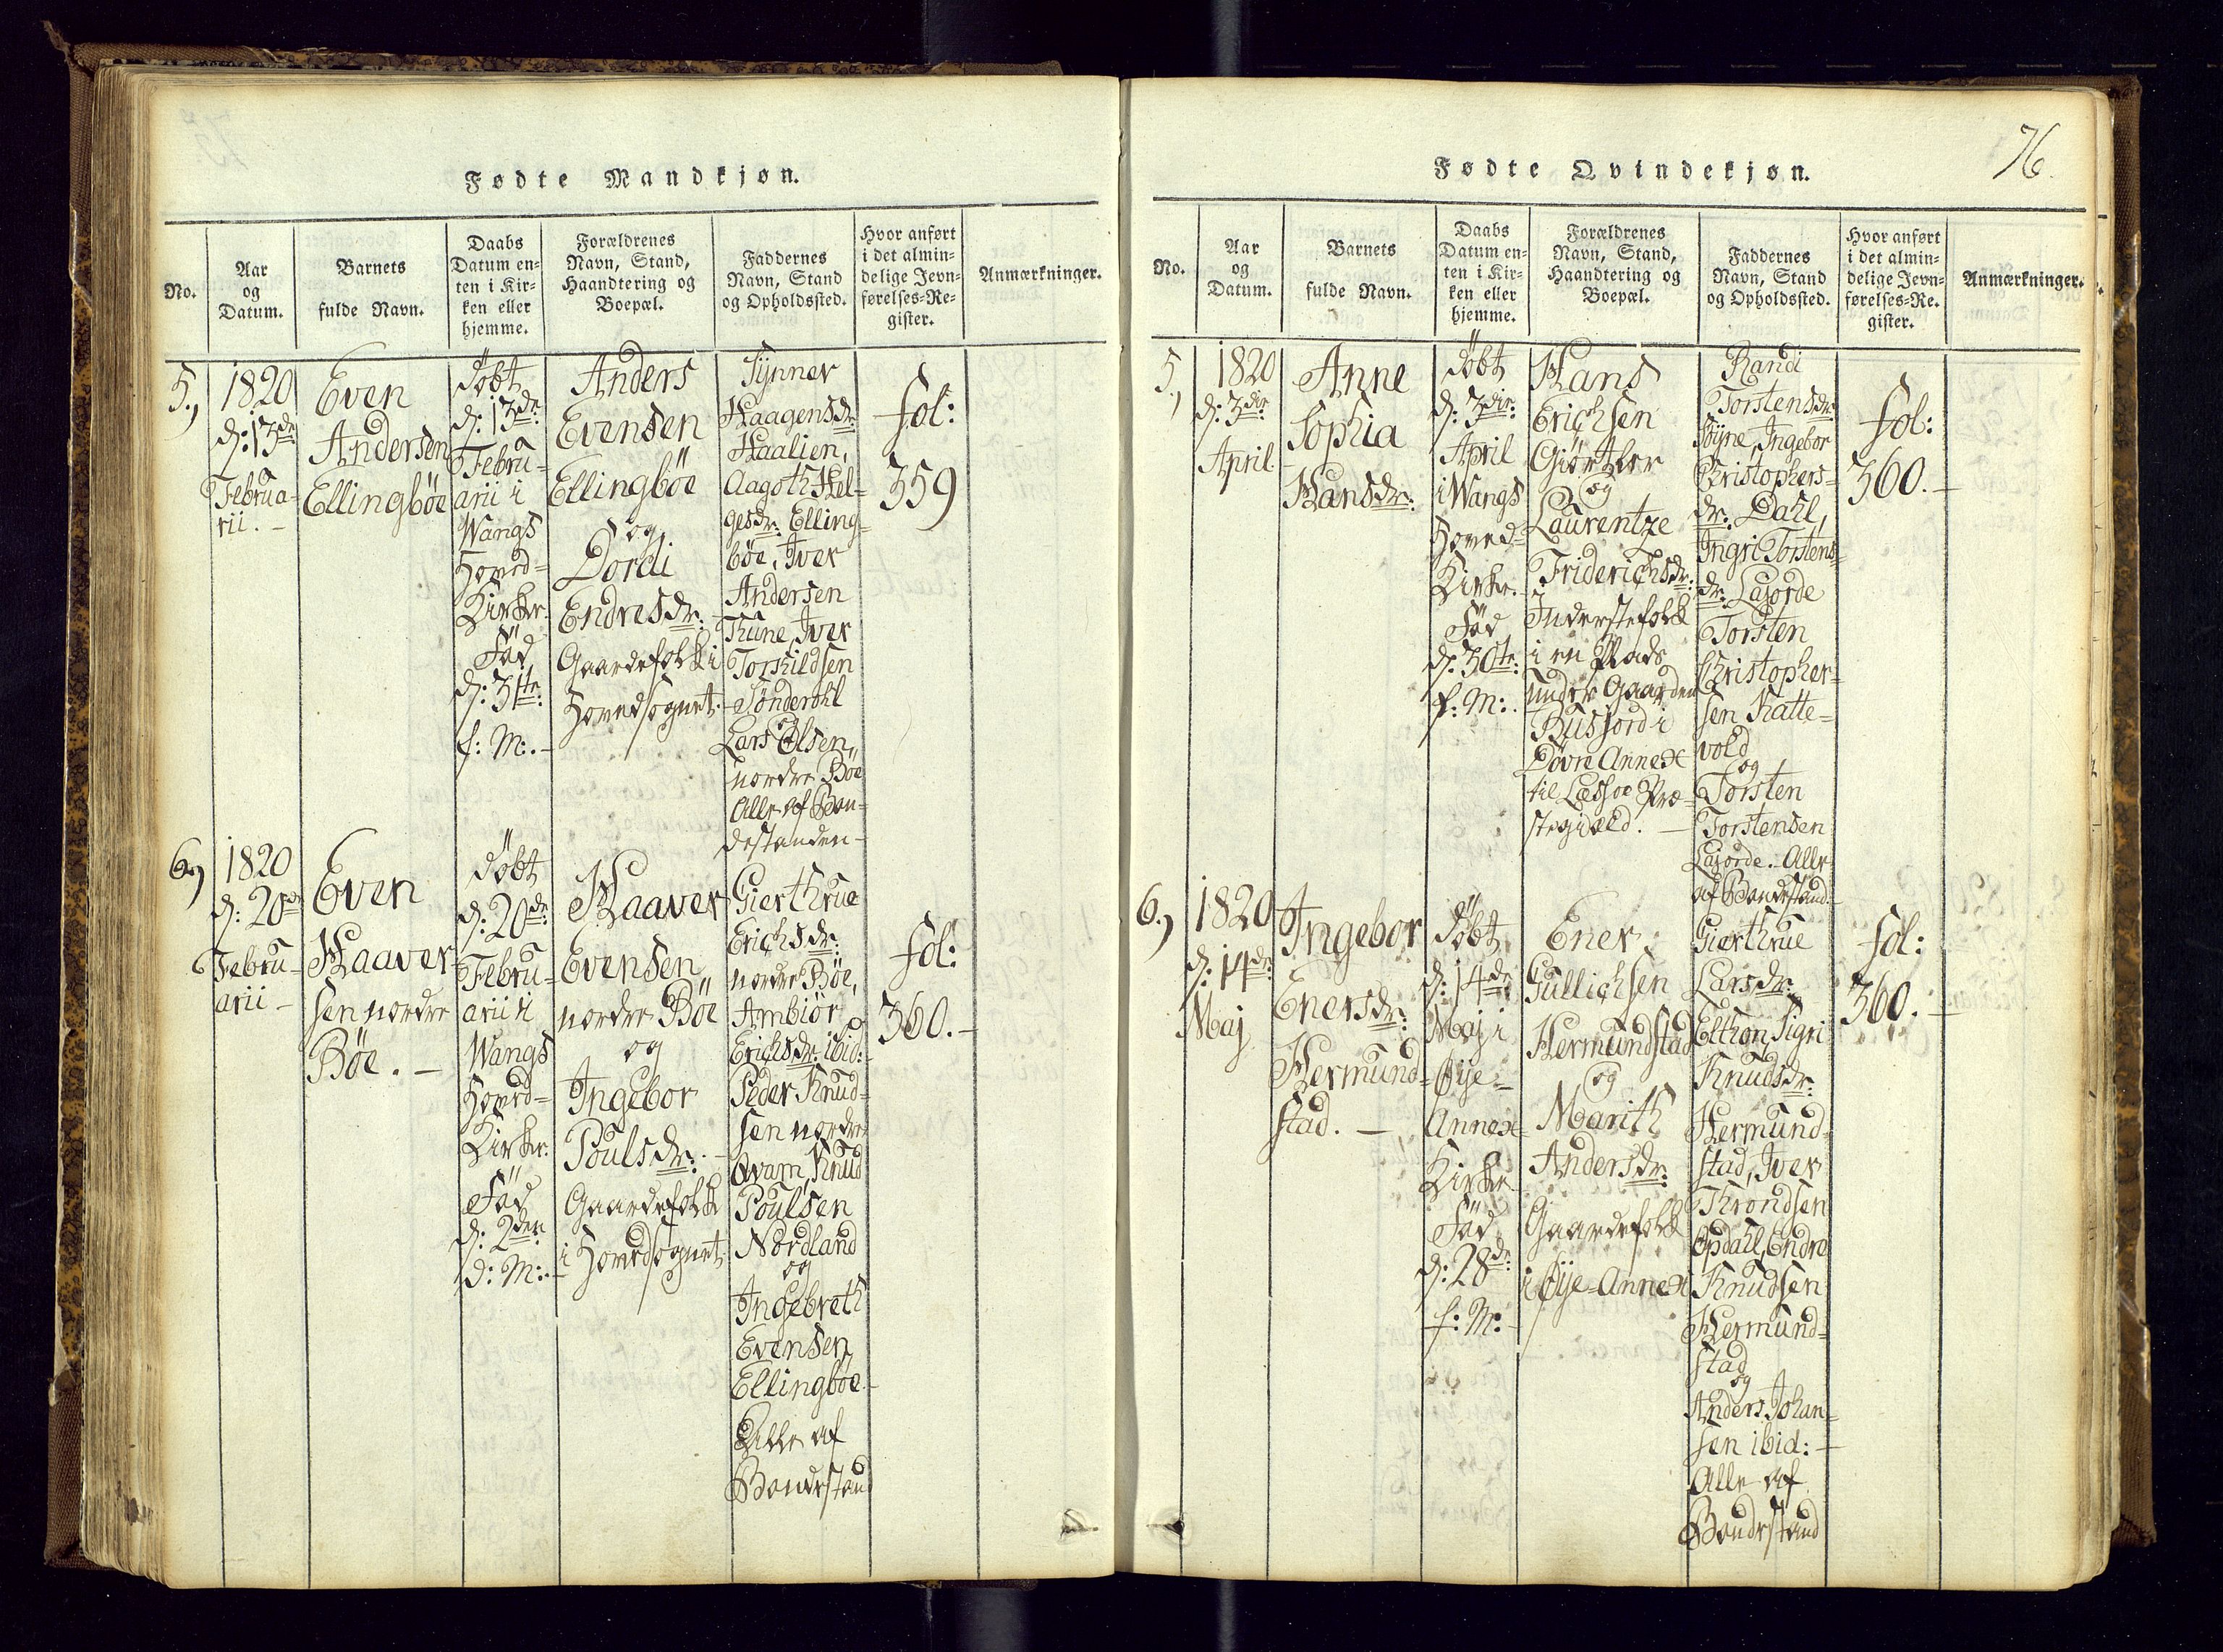 Fødte Mandkjøn.
No.
Aar
og
Datum.
Barnets
fulde Navn.
Daabs
Datum en-
ten i Kir-
ken eller
hjemme.
Forældrenes
Navn, Stand,
Haandtering og
Boepæl.
Faddernes
Navn, Stand
og Opholdssted.
Hvor anført
i det almin-
delige Jevn-
førelses-Re-
gister.
Anmærkninger.
5.,
1820
d: 13de
Februa-
rii. -
Even
Andersen
Ellingböe
döbt
d: 13de
Febru-
arii i
Wangs
Hoved-
Kirke.
Föd
d: 31te:
f: M:. -
Anders
Evensen
Ellingböe
og
Dordi
Endresdr: -
Gaardefolk i
Hovedsognet.
Synner
Haagensdr:
Haalien,
Aagoth Hel-
gesdr: Elling-
böe, Iver
Andersen
Thune, Iver
Torkildsen
Sönderohl
Lars Olsen
nordre Böe
Alle af Bon-
destanden -
fol:
359
6.,
1820
d: 20de
Febru-
arii -
Even
Haaver-
sen nordre
Böe. -
döbt
d: 20de:
Febru-
arii i
Wangs
Hoved-
Kirke.
Föd
d: 2den
d: M:. -
Haaver
Evensen
nordre Böe
og
Ingebor
Poulsdr: -
Gaardefolk
i Hovedsognet.
Gierthrue
Erichsdr:
nordre Böe,
Ambiör
Erichsdr: ibid:
Peder Knud-
sen nordre
Qvam, Knud
Poulsen
Nordland
og
Ingebreth
Evensen
Ellingböe. -
Alle af
Bondestand
fol:
360. -
76.
Fødte Qvindekjøn.
No.
Aar
og
Datum.
Barnets
fulde Navn.
Daabs
Datum en-
ten i Kir-
ken eller
hjemme.
Forældrenes
Navn, Stand,
Haandtering og
Boepæl.
Faddernes
Navn, Stand
og Opholdssted.
Hvor anført
i det almin-
delige Jevn-
førelses-Re-
gister.
Anmærkninger.
5.,
1820
d: 3die
April -
Anne
Sophia
Hansdr:
döbt
d: 3die:
April
i Wangs
Hoved-
Kirke.
Föd
d: 30te:
f: M:.
Hans
Erichsen
Giörtler
og
Laurentze
Friderichsdr:
Inderstefolk
i en Plads
under Gaarden
Busjord i
Dovre Annex
til Lessoe Præ-
stegiæld. -
Randi
Torstensdr:
Söyne, Ingebor
Christophers-
dr: Dahl,
Ingri Torstens-
dr: Lajorde
Torsten
Christopher-
sen Katte-
vold
og
Torsten
Torstensen
Lajorde. Alle
af Bondestand. -
fol:
360. -
6.,
1820
d: 14de
Maj
Ingebor
Enersdr:
Hermund-
stad. -
döbt
d: 14de
Maj i
Øye-
Annex
Kirke
Föd
d: 28de:
f: M: -
Ener
Gullichsen
Hermundstad
og
Marith
Andersdr:
Gaardefolk
i Øye-Annex
Gierthrue
Larsdr:
Elthon, Sigri
Knudsdr:
Hermund-
stad, Iver
Throndsen
Opdahl, Endre
Knudsen
Hermund-
stad
og
Anders Johan-
sen ibid: -
Alle af
Bondestand
fol:
360. -